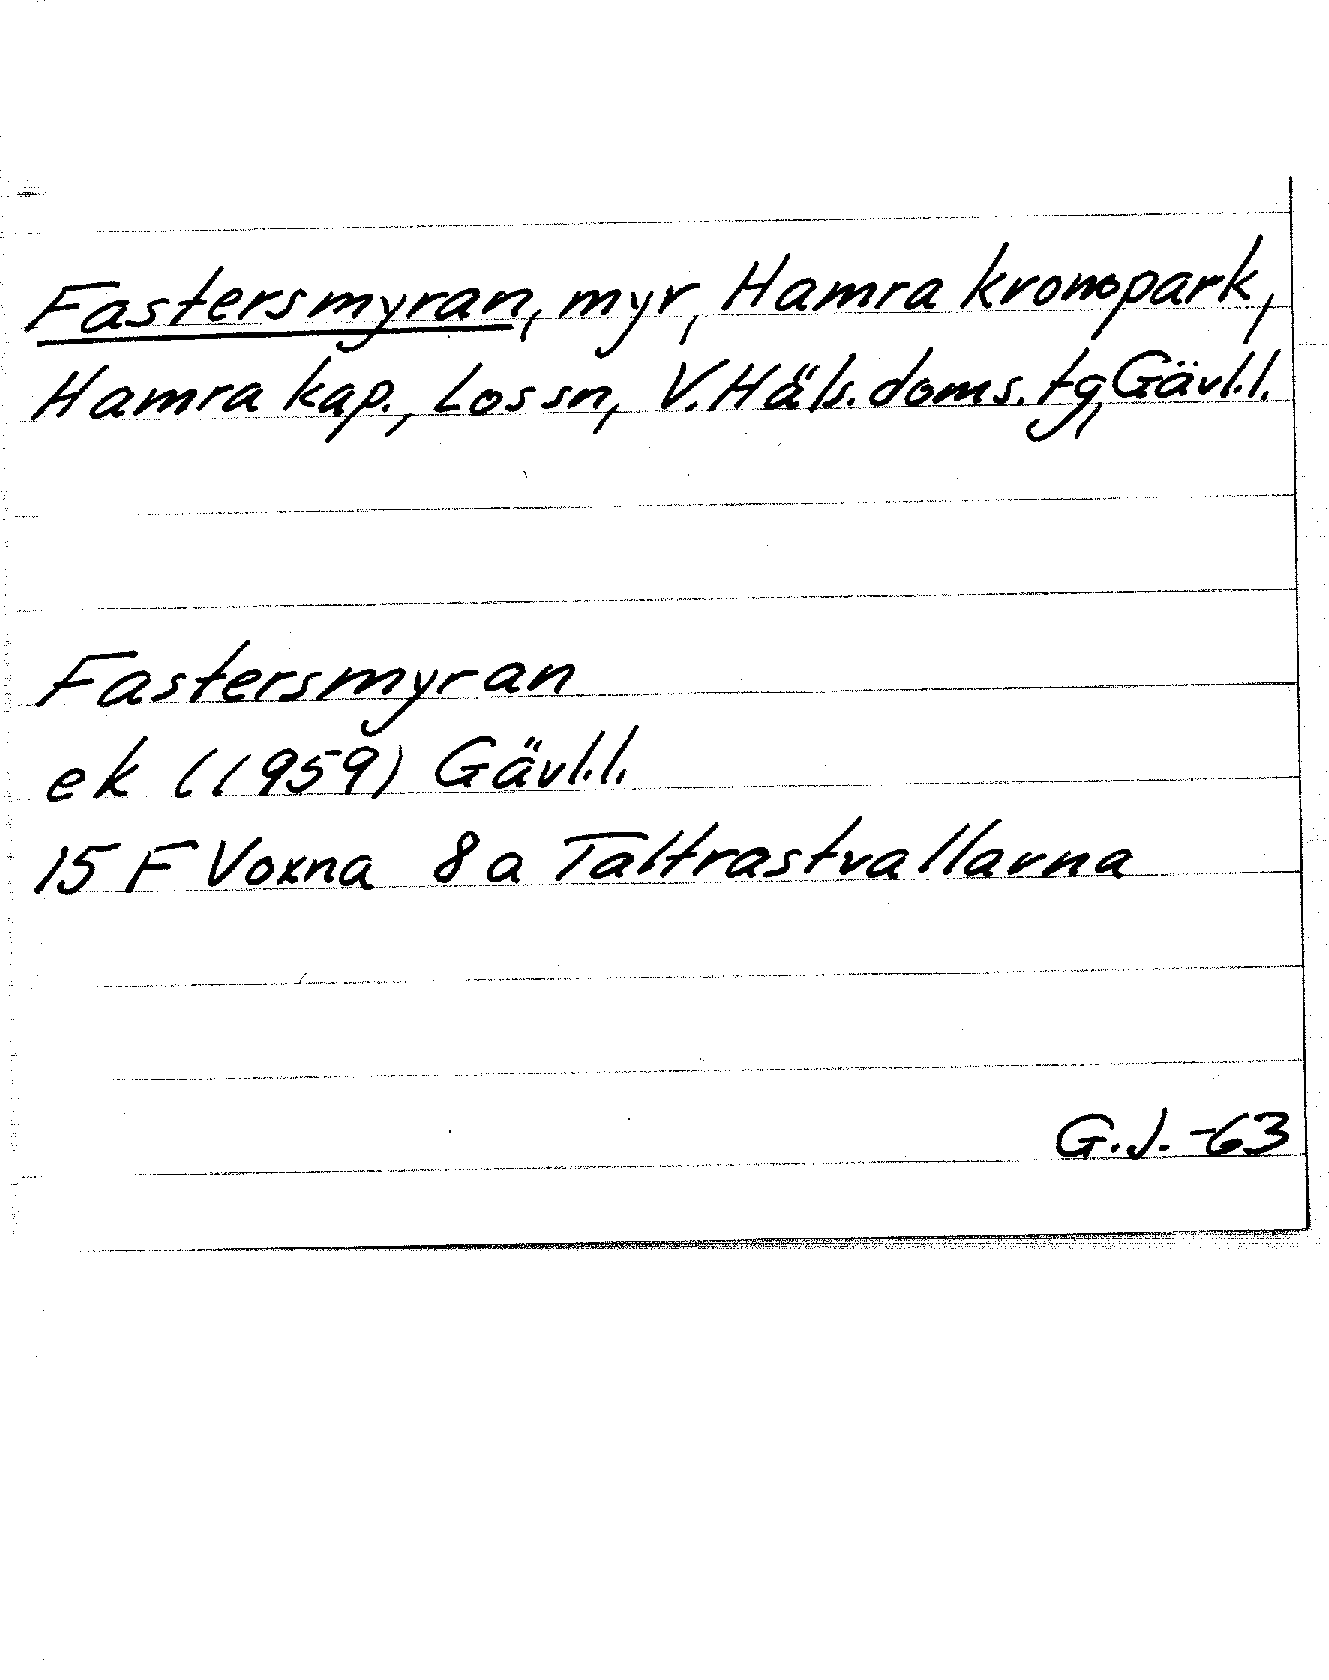 Fastersmyran, myr, Hamra kronopark,
Hamra kap., Los sn, V. Häls. doms. tg, Gävl.l.
Fastersmyran
ek (1959) Gävl.l.
15 F Voxna 8 a Taltrastvallarna
G.J. -63